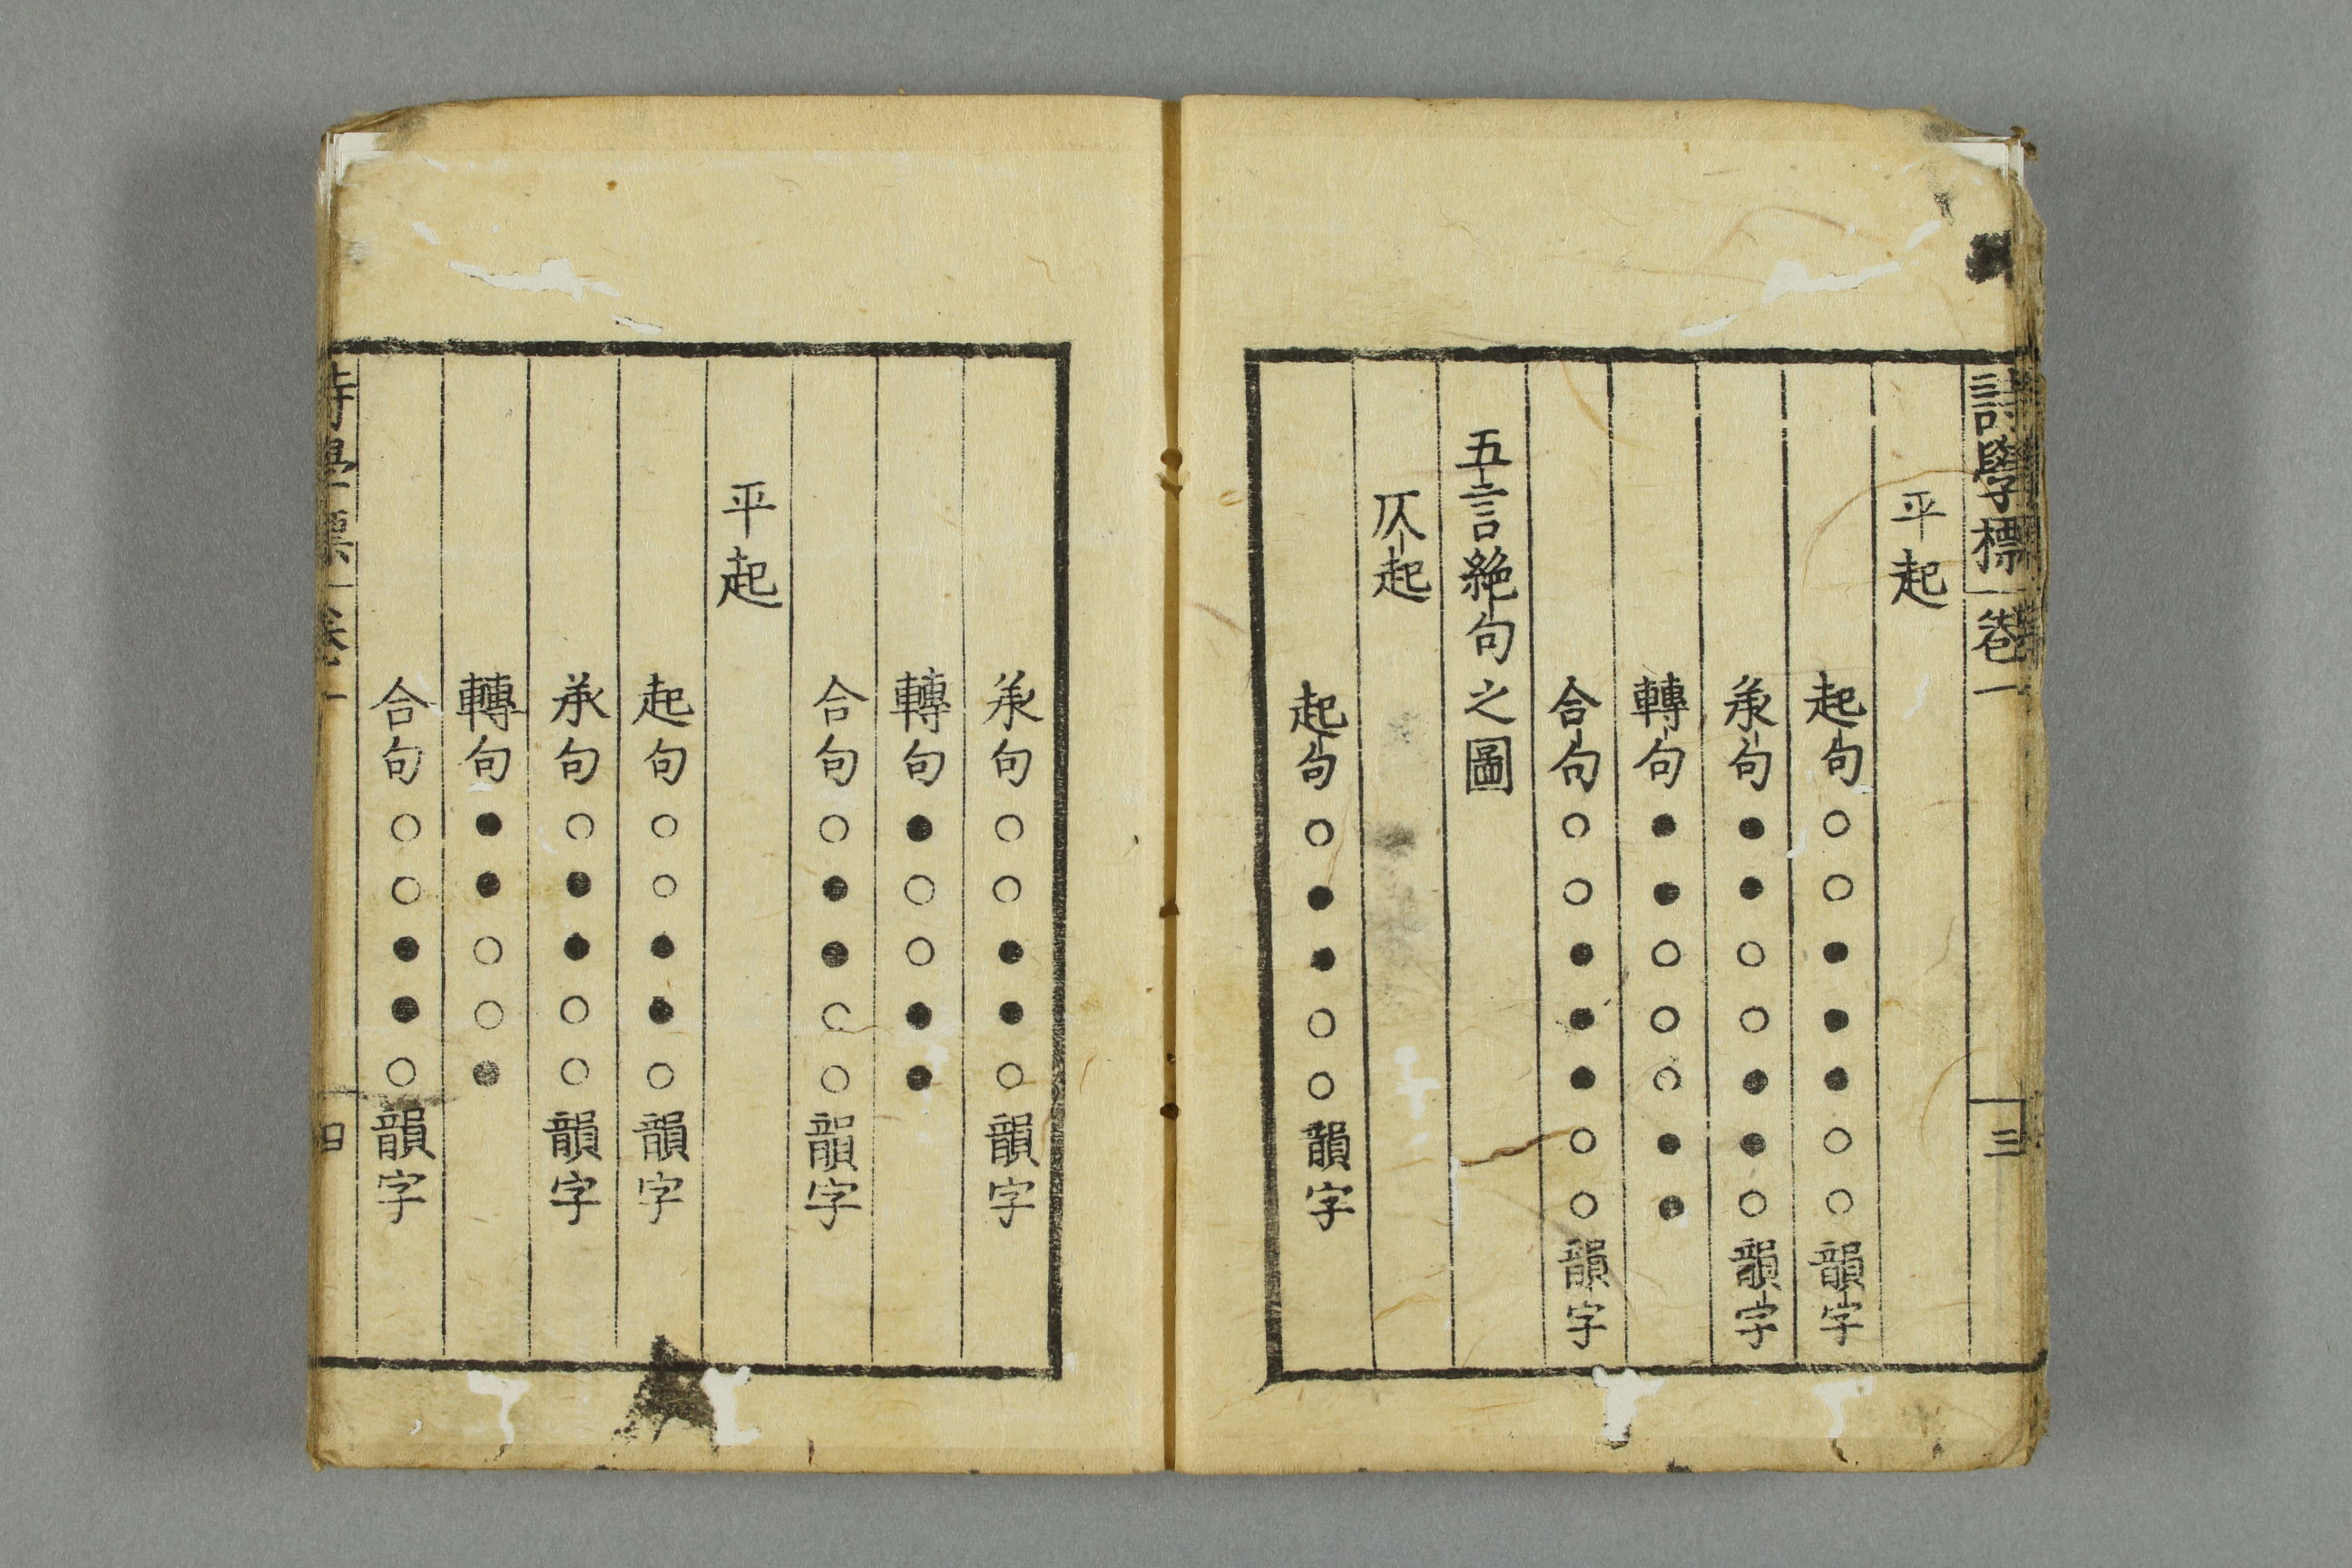 詩學標 卷一 三
平起
起句○○●●●○○韻字
承句●●○○●●○韻字
轉句●●○○○●●
合句○○●●●○○韻字
五言絶句之圖
仄起
起句○●●○○韻字
承句○○●●○韻字
轉句●○○●●
合句○●●○○韻字
平起
起句○○●●○韻字
承句○●●○○韻字
轉句●●○○●
合句○○●●○韻字
詩學標 卷一 四